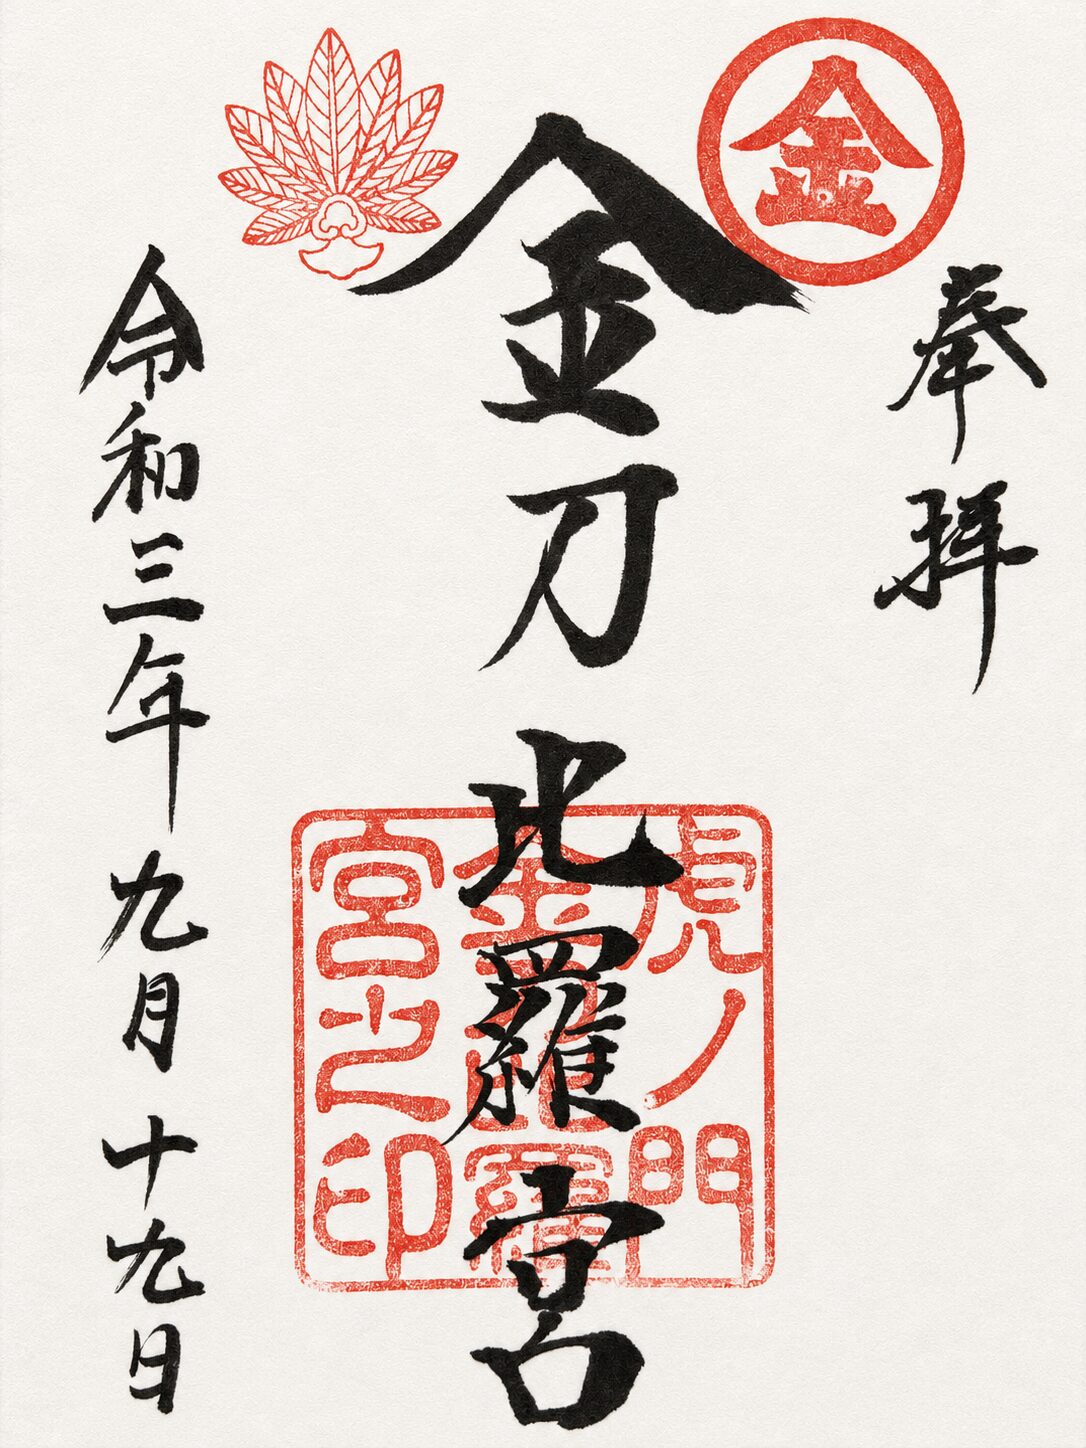 金
奉拝
金刀比羅宮
虎ノ門
金刀比羅
宮之印
令和三年九月十九日